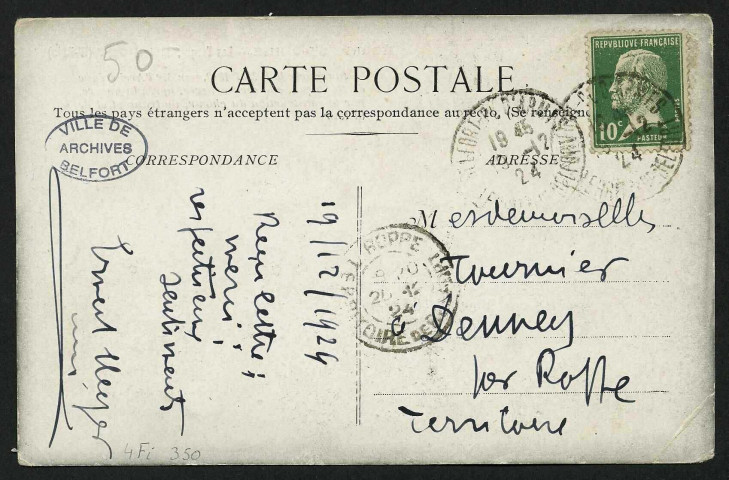 50
CARTE POSTALE
Tous les pays étrangers n'acceptent pas la correspondance au recto, (Se renseign
REPVBLIQUE FRANÇAISE
10c
POSTES
PASTEUR
VILLE DE
ARCHIVES
BELFORT
CORRESPONDANCE
ADRESSE
19 45
12
24
12
24
ROPPE
24
TERRITOIRE DE
19/12/1924
Reçu lettre,
merci,
respectueux
sentiments
Ernest Meyer
Mesdemoiselles
Tournier
à Denney
par Roppe
Territoire
4 Fi 350